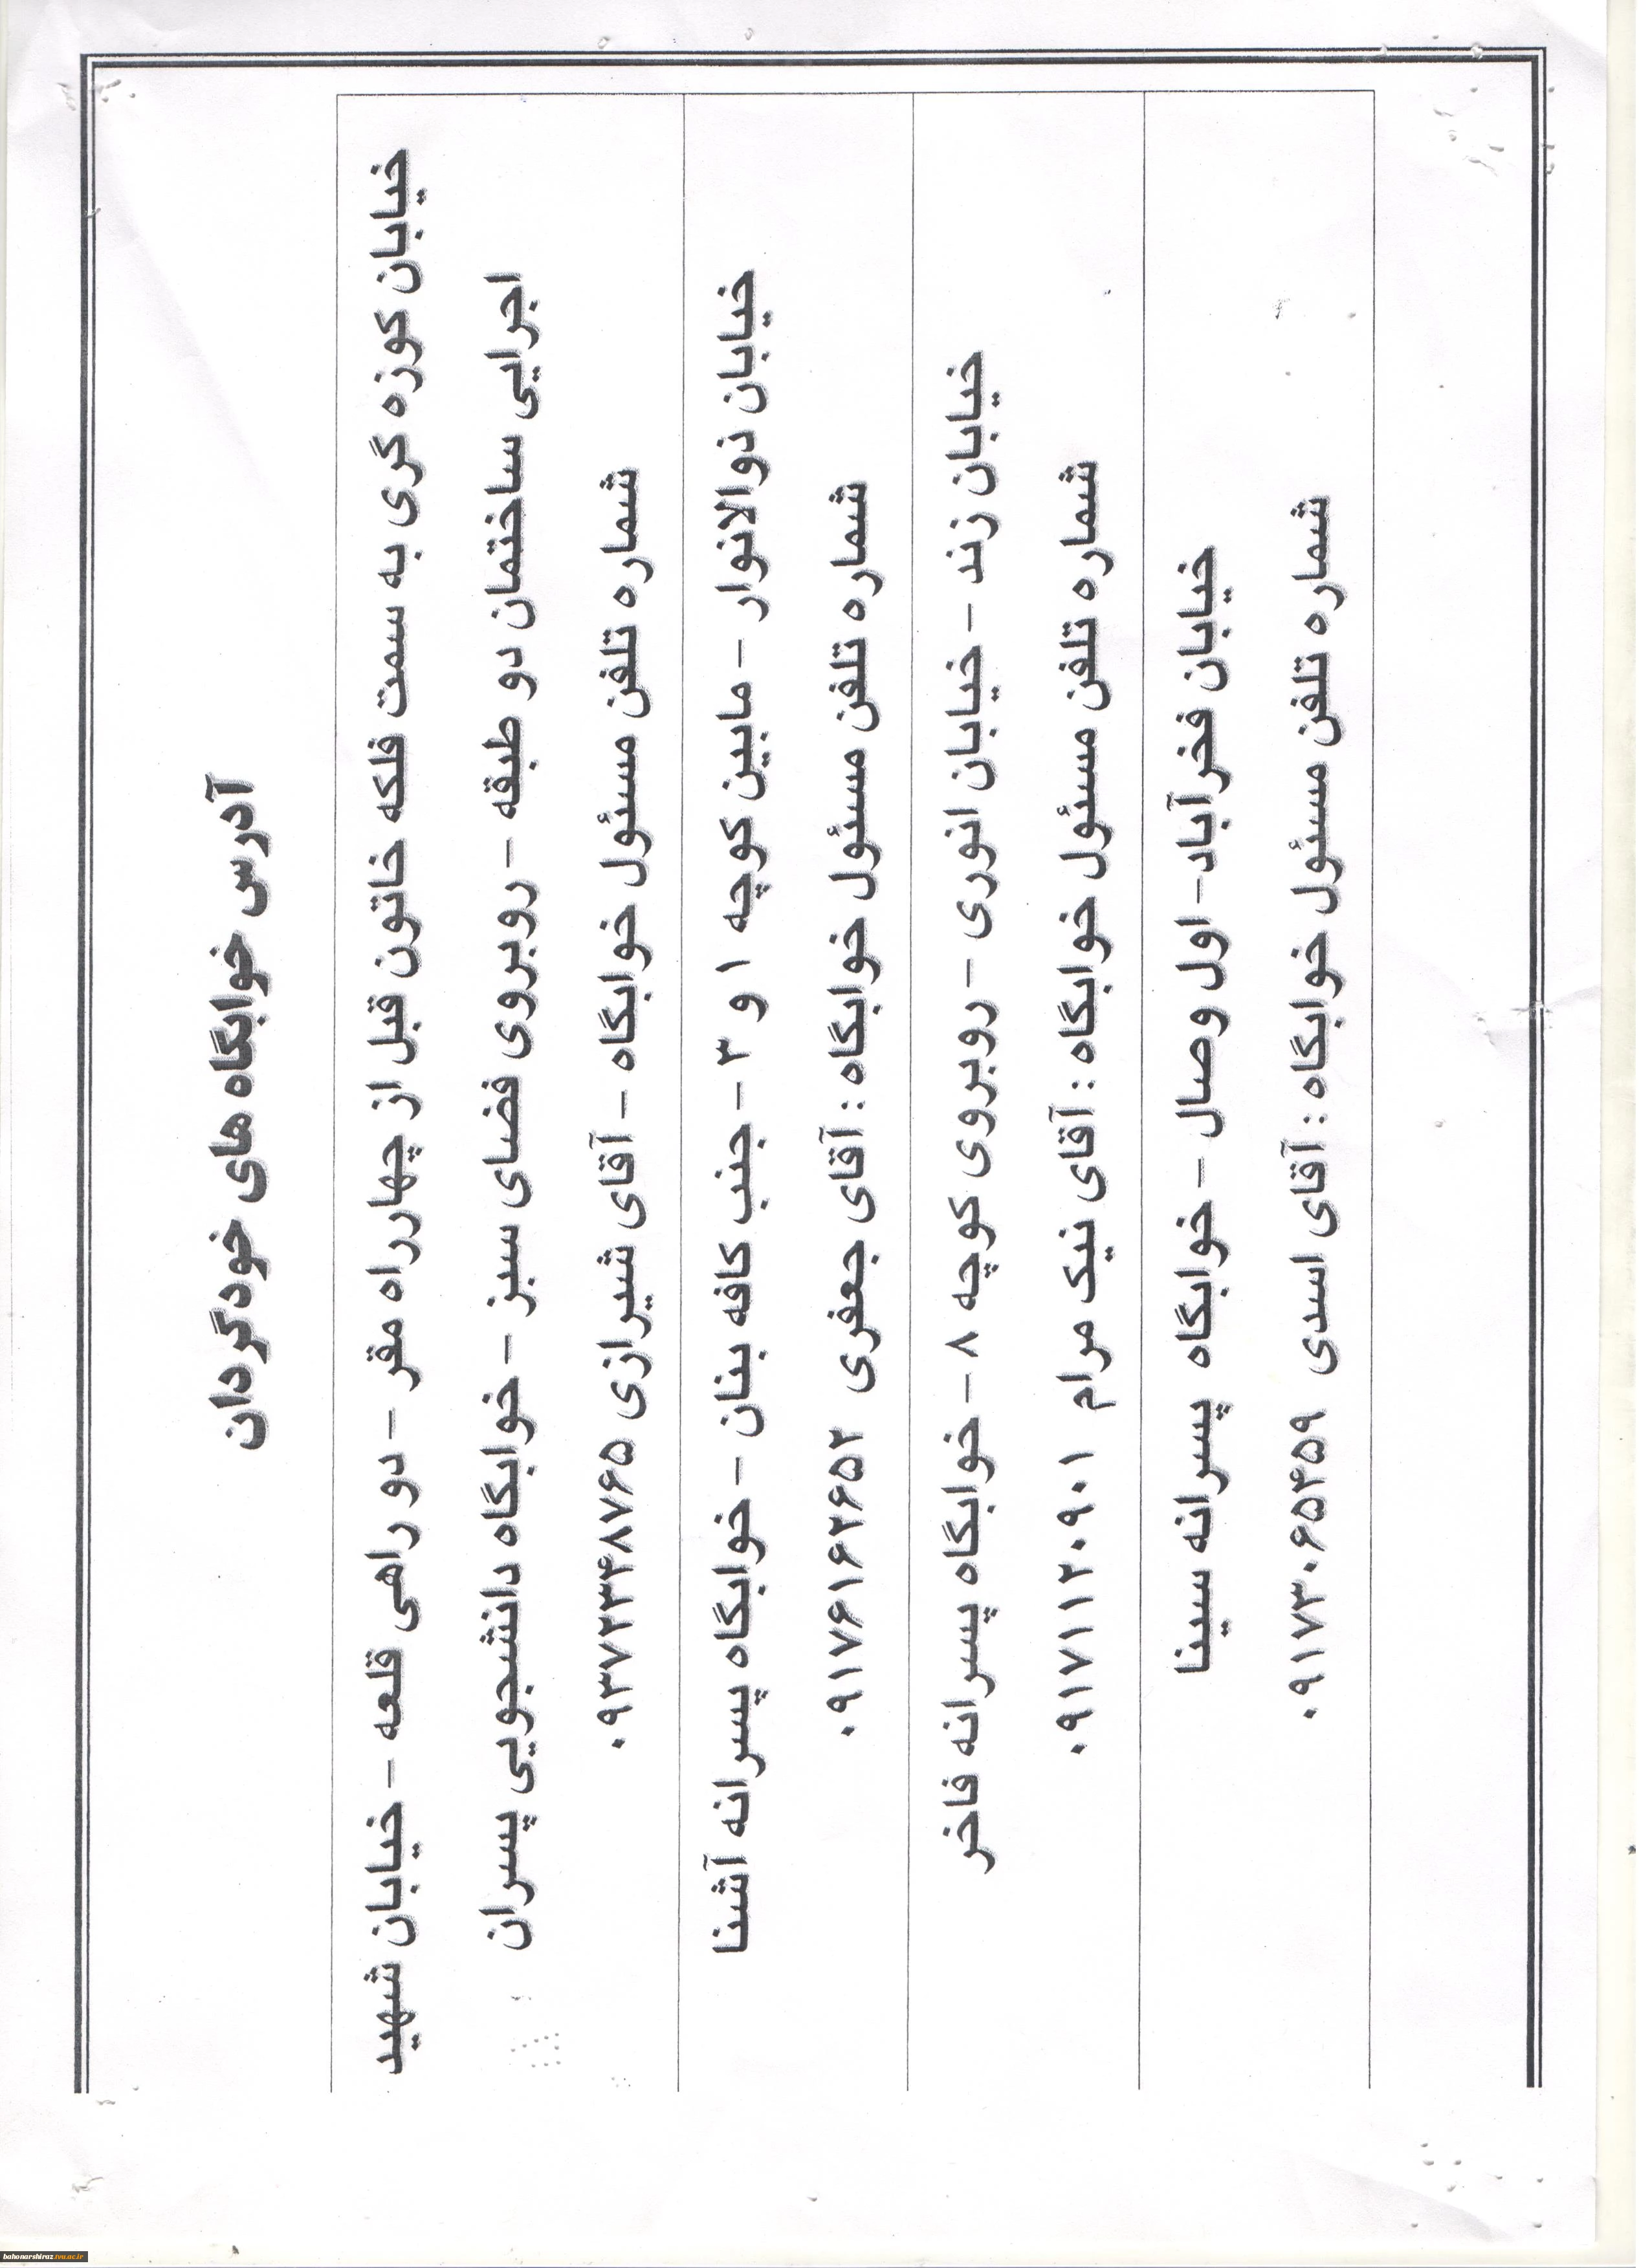 آدرس خوابگاه های خودگردان
خیابان کوزه گری به سمت فلکه خاتون قبل از چهارراه مقر - دو راهی قلعه - خیابان شهید
اجرایی ساختمان دو طبقه - روبروی فضای سبز - خوابگاه دانشجویی پسران
شماره تلفن مسئول خوابگاه - آقای شیرازی ۰۹۳۷۲۳۴۸۷۶۵
خیابان نوالانوار - مابین کوچه ۱ و ۳ - جنب کافه بنان - خوابگاه پسرانه آشنا
شماره تلفن مسئول خوابگاه : آقای جعفری ۰۹۱۷۶۱۶۲۶۵۲
خیابان زند - خیابان انوری - روبروی کوچه ۸ - خوابگاه پسرانه فاخر
شماره تلفن مسئول خوابگاه : آقای نیک مرام ۰۹۱۷۱۱۲۰۹۰۱
خیابان فخرآباد- اول وصال - خوابگاه پسرانه سینا
شماره تلفن مسئول خوابگاه : آقای اسدی ۰۹۱۷۳۰۶۵۴۵۹
bahonarshiraz.tvu.ac.ir